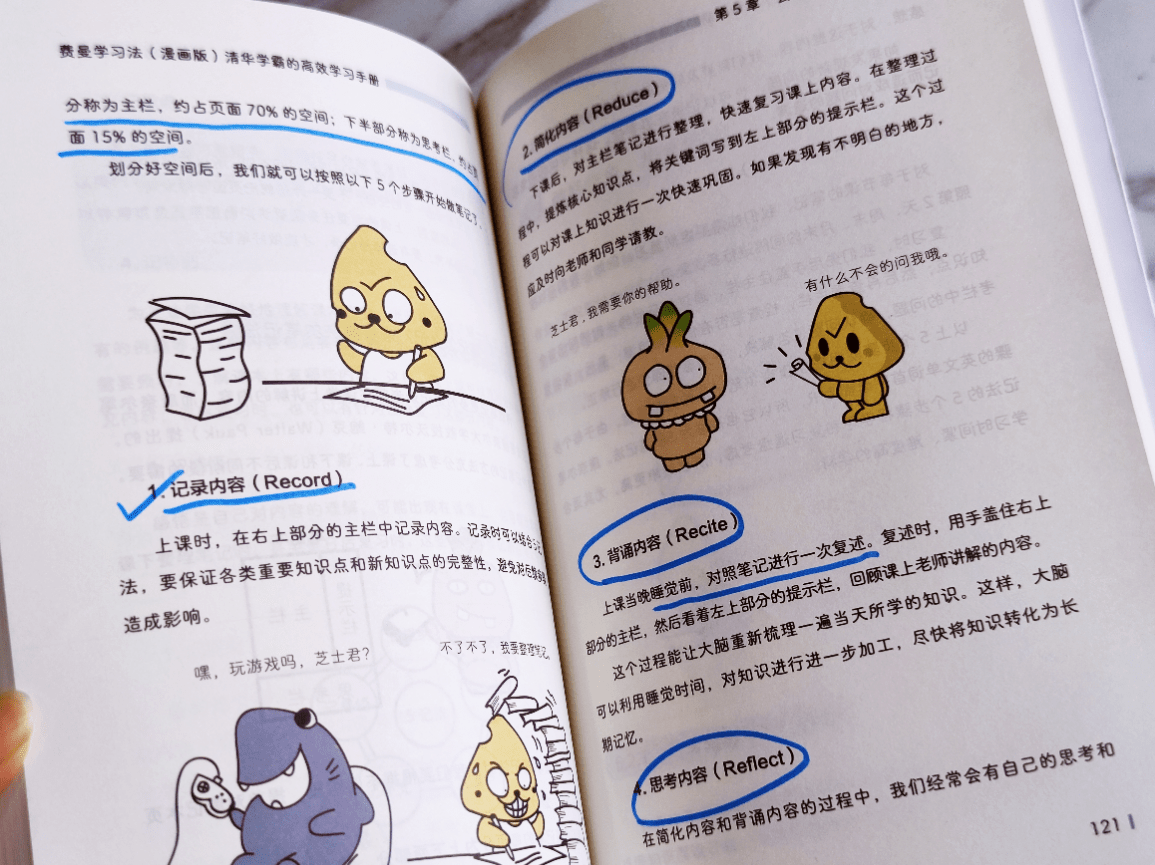 费曼学习法（漫画版）清华学霸的高效学习手册
分称为主栏，约占页面 70% 的空间；下半部分称为思考栏，约占页
面 15% 的空间。
划分好空间后，我们就可以按照以下 5 个步骤开始做笔记了。
1. 记录内容（Record）
上课时，在右上部分的主栏中记录内容。记录时可以结合
法，要保证各类重要知识点和新知识点的完整性，避免对
造成影响。
嘿，玩游戏吗，芝士君？
不了不了，我要整理笔记。
第 5 章
2. 简化内容（Reduce）
下课后，对主栏笔记进行整理，快速复习课上内容。在整理过
程中，提炼核心知识点，将关键词写到左上部分的提示栏。这个过
程可以对课上知识进行一次快速巩固。如果发现有不明白的地方，
应及时向老师和同学请教。
芝士君，我需要你的帮助。
有什么不会的问我哦。
3. 背诵内容（Recite）
上课当晚睡觉前，对照笔记进行一次复述。复述时，用手盖住右上
部分的主栏，然后看着左上部分的提示栏，回顾课上老师讲解的内容。
这个过程能让大脑重新梳理一遍当天所学的知识。这样，大脑
可以利用睡觉时间，对知识进行进一步加工，尽快将知识转化为长
期记忆。
4. 思考内容（Reflect）
在简化内容和背诵内容的过程中，我们经常会有自己的思考和
121